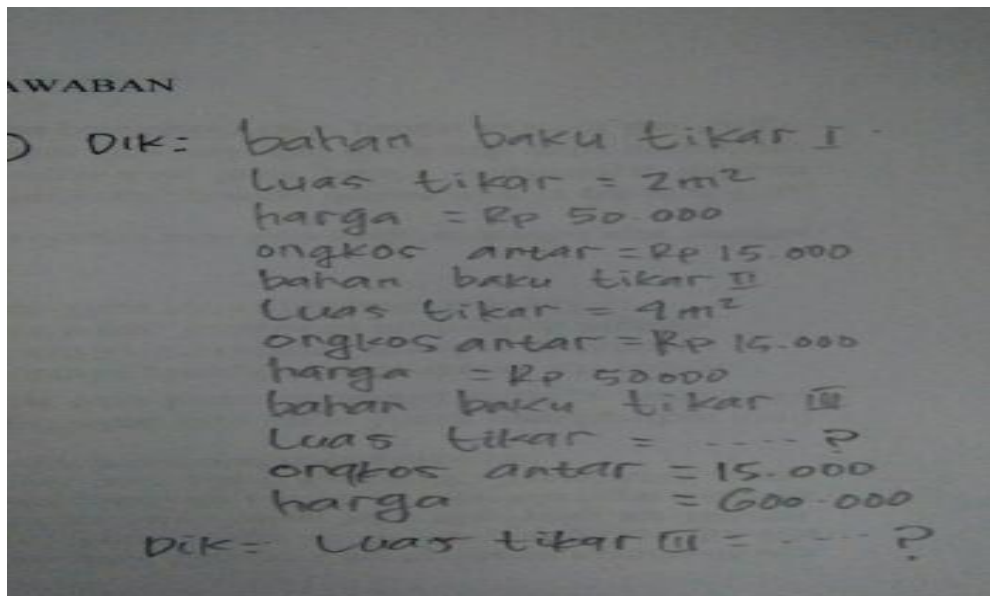 AWABAN
) Dik: bahan baku tikar I
Luas tikar = 2m²
harga = Rp 50.000
ongkos antar = Rp 15.000
bahan baku tikar II
Luas tikar = 4m²
ongkos antar = Rp 15.000
harga = Rp 50000
bahan baku tikar III
Luas tikar = ..... ?
ongkos antar = 15.000
harga = 600.000
Dik = Luas tikar III = ..... ?